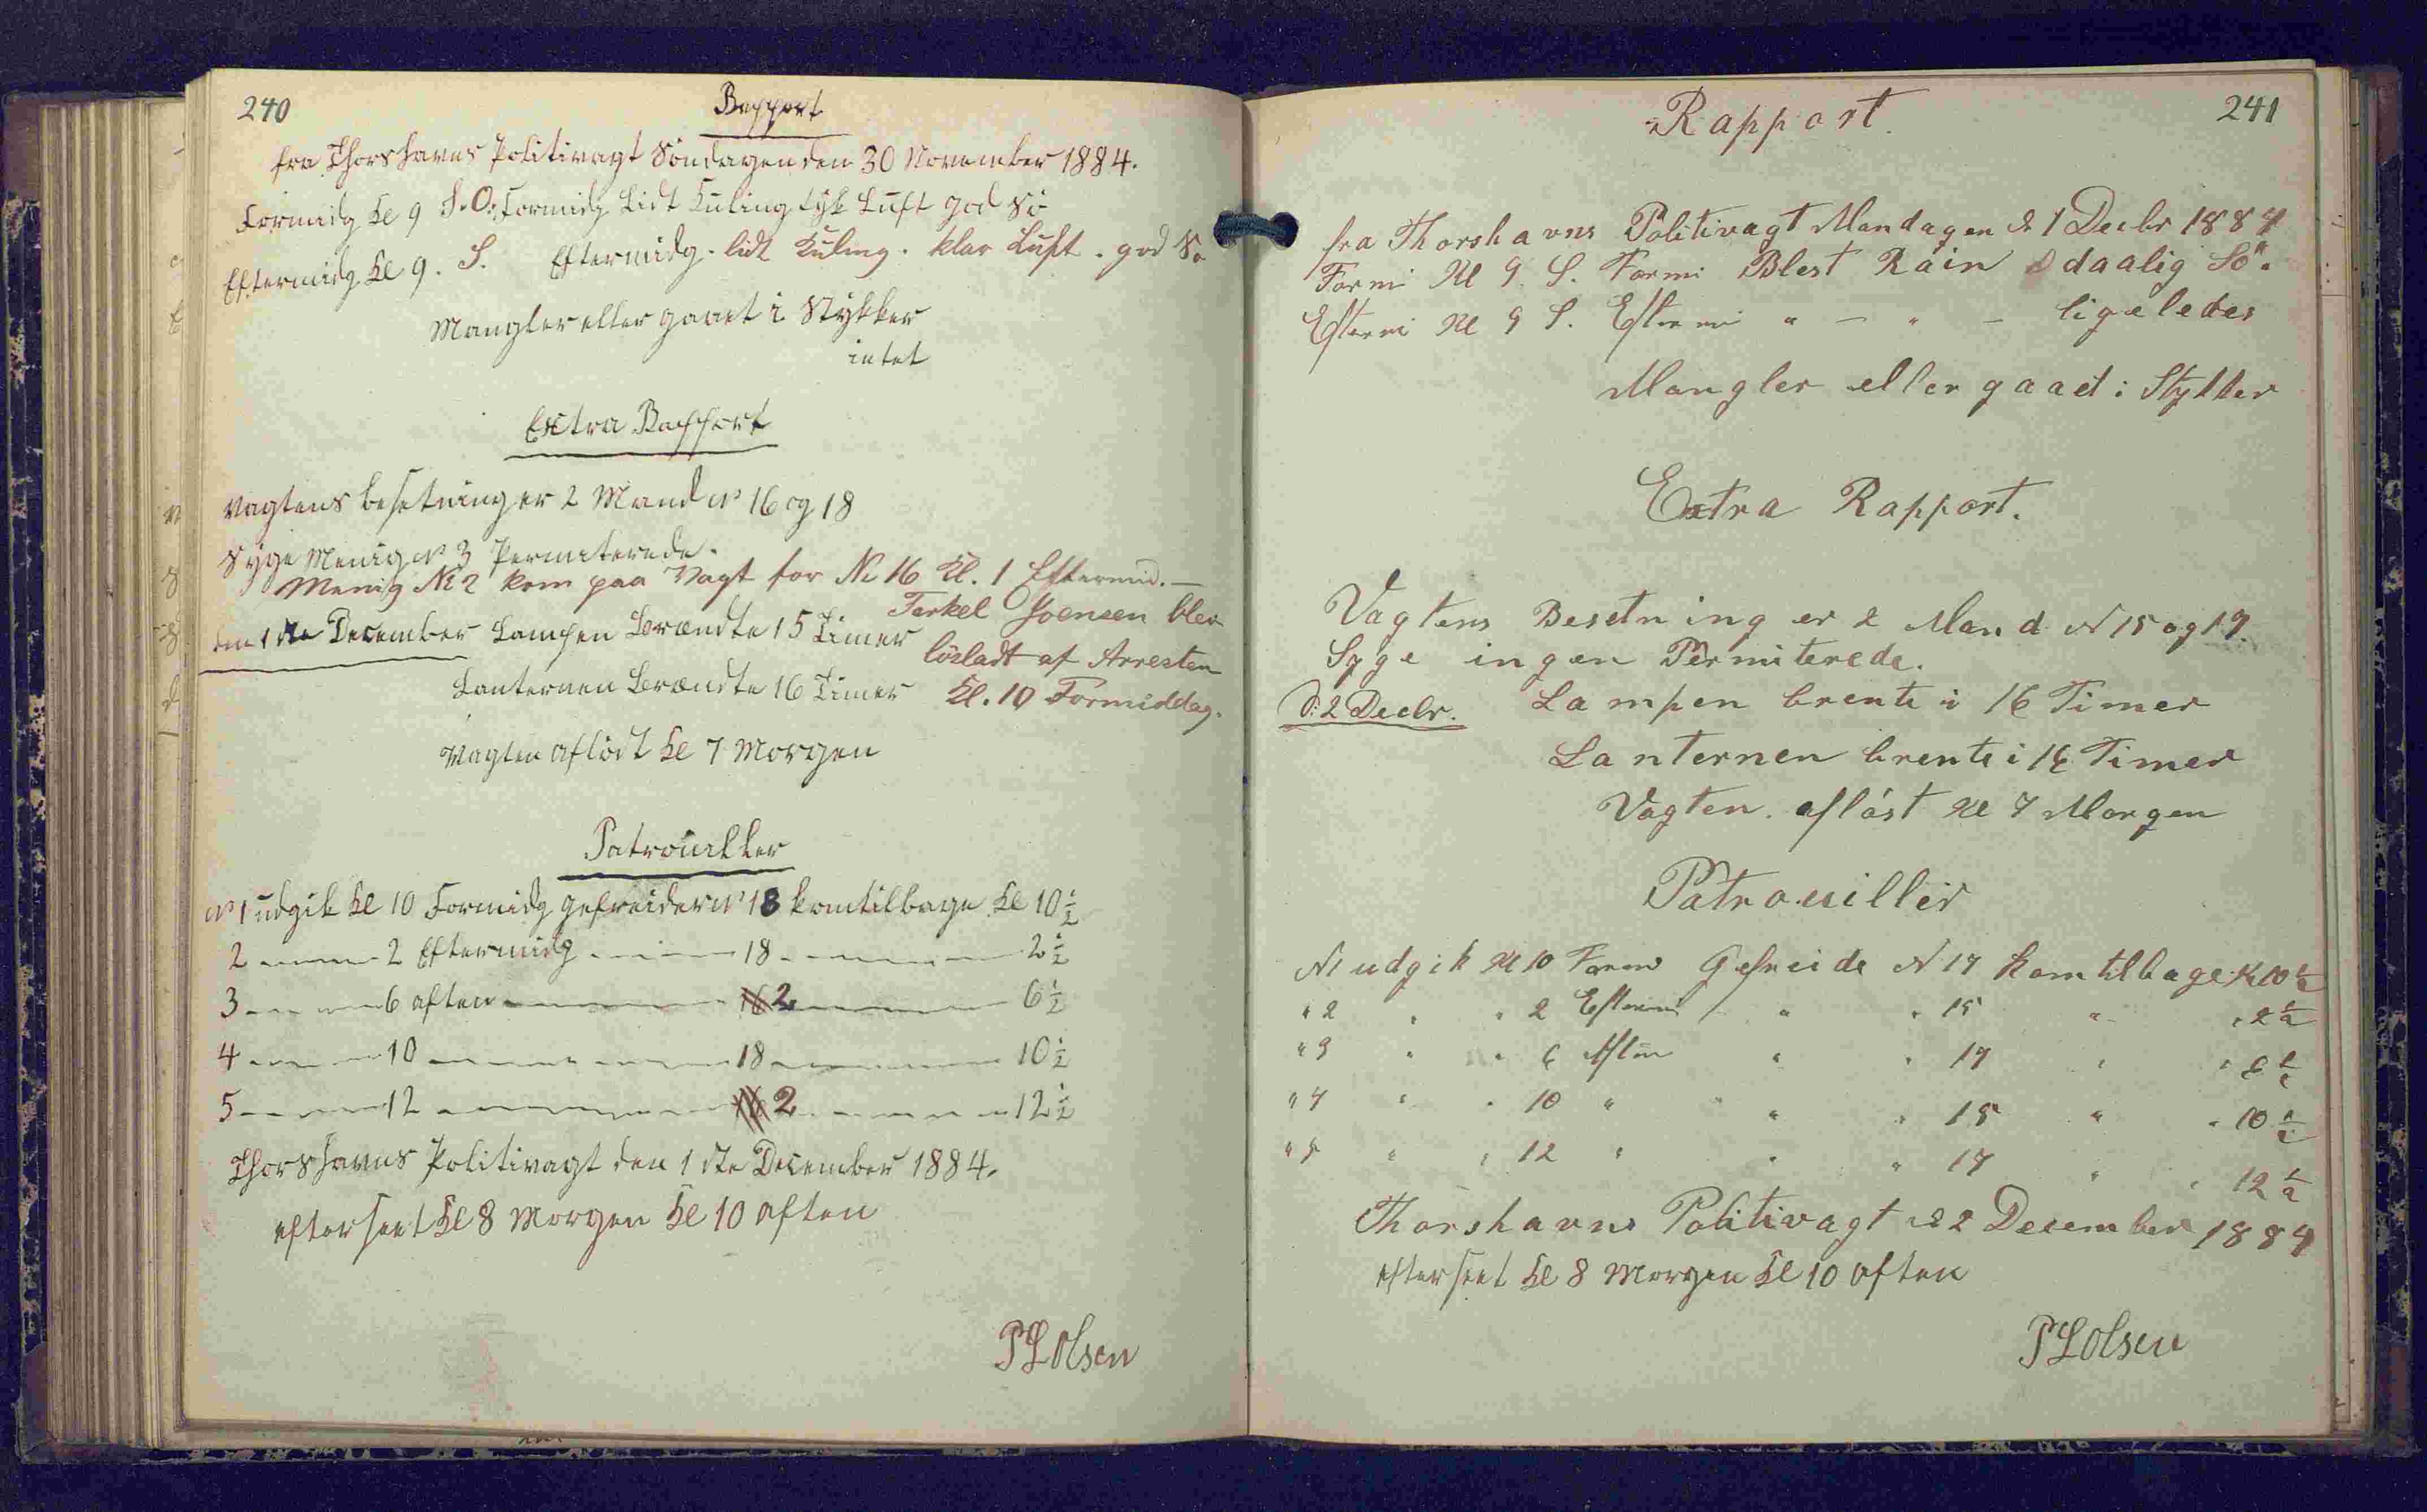 240
Rapport
fra Thorshavns Politivagt Söndagen den 30 November 1884.
Formidg Kl 9 S.O. Formidg Lidt Kuling tyk Luft god Sö
Eftermidg Kl 9. S. Eftermidg. lidt Kuling. klar Luft. god Sö
Mangler eller gaaet i Stykker
intet
Extra Rapport
Vagtens besetning er 2 Mand No 16 og 18
Syge Menig No 3 Permiterede.
Menig No 2 kom paa Vagt for No 16 Kl. 1 Eftermid. —
Terkel Joensen blev
lösladt af Arresten
Kl. 10 Formiddag.
den 1ste December Lampen Brændte 15 Timer
Lanternen Brændte 16 Timer
Vagten aflöst Kl 7 Morgen
Patrouiller
No 1 udgik Kl 10 Formidg gefreider No 18 kom tilbage Kl 10 1/2
2 — 2 Eftermidg — 18 — 2 1/2
3 — 6 aften — 16 2 — 6 1/2
4 — 10 — 18 — 10 1/2
5 — 12 — 16 2 — 12 1/2
Thorshavns Politivagt den 1ste December 1884.
efterseet Kl 8 Morgen Kl 10 aften
P L Olsen
241
Rapport.
fra Thorshavns Politivagt Mandagen d 1 Decbr 1884
Formi Kl 9. S. Formi Blest Rain daalig Sö.
Eftermi Kl 9 S. Eftermi " — " — ligeledes
Mangler eller gaaet i Stykker
Extra Rapport.
Vagtens Besetning er 2 Mand N 15 og 17.
Syge ingen Permiterede.
D: 2 Decbr. Lampen brente i 16 Timer
Lanternen brente i 16 Timer
Vagten. aflöst Kl 7 Morgen
Patrouiller
N1 udgik Kl 10 Form Gefreide N 17 kom tilbage K 10 1/2
" 2 " " 2 Eftermi " " 15 " " 2 1/2
" 3 " " 6 Aften " " 17 " " 6 1/2
" 4 " " 10 " " " 15 " " 10 1/2
" 5 " " 12 " " " 17 " " 12 1/2
Thorshavns Politivagt d 2 December 1884
efterseet Kl 8 Morgen Kl 10 aften
P L Olsen